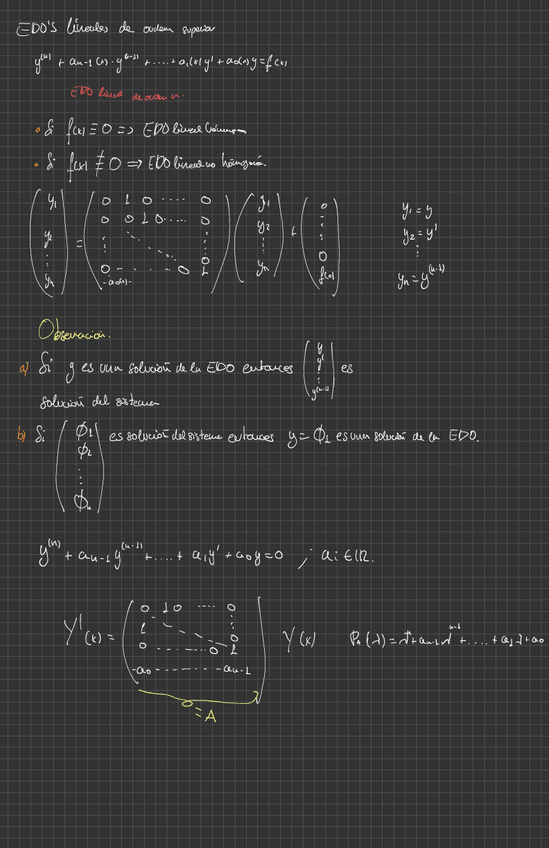 EDO'S lineales de orden superior
y^(n) + a_{n-1}(x) · y^(n-1) + .... + a_1(x) y' + a_0(x) y = f(x)
EDO lineal de orden n.
• Si f(x) ≡ 0 => EDO lineal
• Si f(x) ≢ 0 => EDO lineal no
( y_1 y_2 ⋮ y_n ) = ( 0 1 0 ..... 0 / 0 0 1 0 ..... 0 / ⋮ ⋮ 0 / 0 - ..... 0 1 / -a_0(x) - ) ( y_1 y_2 ⋮ y_n ) + ( 0 ⋮ 0 f(x) )
y_1 = y
y_2 = y'
⋮
y_n = y^(n-1)
Observación.
a) Si y es una solución de la EDO entonces ( y y' ⋮ y^(n-1) ) es
solución del sistema
b) Si ( ϕ_1 ϕ_2 ⋮ ϕ_n ) es solución del sistema entonces y = ϕ_1 es una solución de la EDO.
y^(n) + a_{n-1} y^(n-1) + .... + a_1 y' + a_0 y = 0 ; a_i ∈ IR.
Y'(x) = ( 0 1 0 .... 0 / ⋮ 0 / 0 - ..... 0 1 / -a_0 - ..... - a_{n-1} ) Y(x) P_A(λ) = λ^n + a_{n-1} λ^{n-1} + .... + a_1 λ + a_0
= A